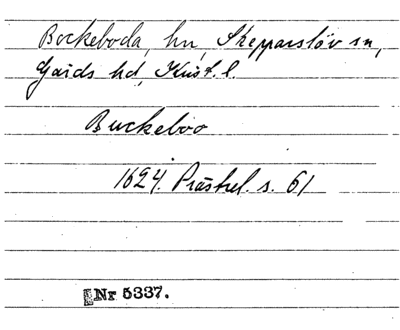 Bockeboda, hn, Skepparslöv sn,
Gärds hd, Krist. l.
Buckeboo
1624. Prästrel. s. 61
Nr 5337.